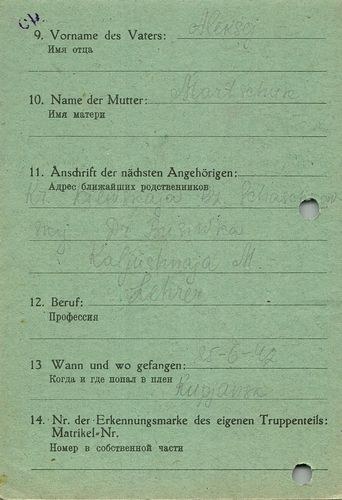 9. Vorname des Vaters: Aleksej
Имя отца
10. Name der Mutter: Martschuk
Имя матери
11. Anschrift der nächsten Angehörigen:
Адрес ближайших родственников
Kaljushnaja M.
Lehrer
12. Beruf:
Профессия
13 Wann und wo gefangen: 25-6-42
Когда и где попал в плен Kupjansk
14. Nr. der Erkennungsmarke des eigenen Truppenteils:
Matrikel-Nr.
Номер в собственной части